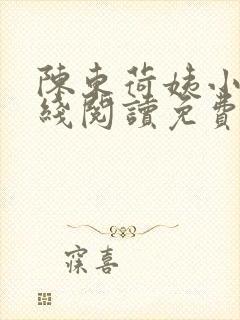 陳東荷姨小
綫閱讀免費
寐喜